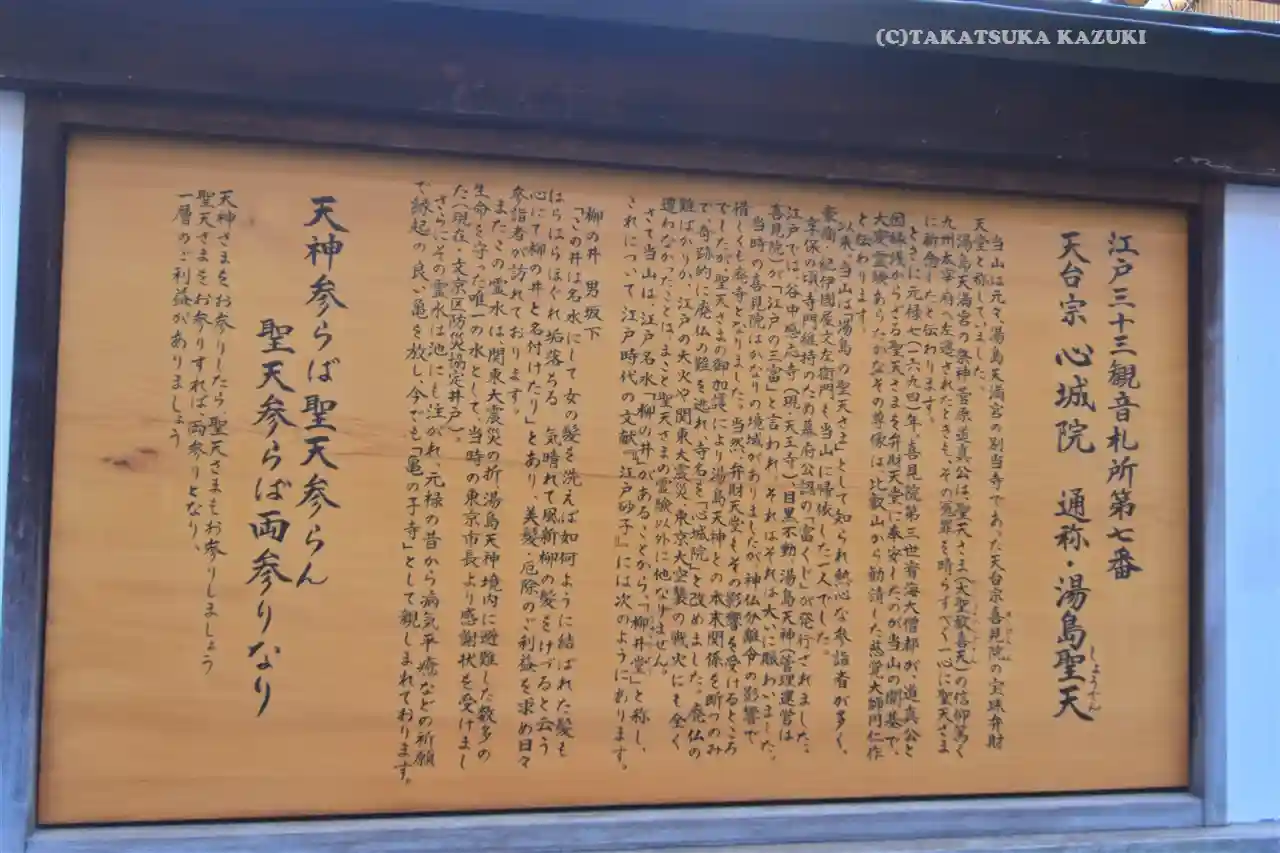 (C)TAKATSUKA KAZUKI
江戸三十三観音札所第七番
天台宗 心城院 通称・湯島聖天
しょうでん
当山は元々、湯島天満宮の別当寺であった天台宗喜見院の宝珠弁財
きけんいん
天堂と称していました。
湯島天満宮の祭神菅原道真公は、聖天さま(大聖歓喜天)の信仰篤く
九州太宰府へ左遷されたときも、その冤罪を晴らすべく一心に聖天さま
に祈念したと伝わります。
ときに元禄七(一六九四)年、喜見院第三世宥海大僧都が、道真公と
因縁浅からざる聖天さまを弁財天堂に奉安したのが当山の開基で、
大変霊験あらたかなその尊像は比叡山から勧請した慈覚大師円仁作
と伝わります。
以来、当山は「湯島の聖天さま」として知られ熱心な参詣者が多く、
豪商・紀伊國屋文左衛門も当山に帰依した一人でした。
享保の頃、寺門維持のため幕府公認の「富くじ」が発行されました。
江戸では、谷中感応寺(現・天王寺)、目黒不動、湯島天神(管理運営は
喜見院)が「江戸の三富」と言われ、それはそれは大いに賑わいました。
当時の喜見院はかなりの境域がありましたが、神仏分離令の影響で
惜しくも廃寺となりました。当然、弁財天堂もその影響を受けるところ
でしたが、聖天さまの御加護により湯島天神との本末関係を断つのみ
で、奇跡的に廃仏の難を逃れ、寺名を「心城院」と改めました。廃仏の
難ばかりか、江戸の大火や関東大震災、東京大空襲の戦火にも全く
遭わなかったことは、まこと聖天さまの霊験以外に他なりません。
さて当山は、江戸名水「柳の井」があることから、「柳井堂」と称し、
これについて江戸時代の文献『江戸砂子』には次のようにあります。
柳の井 男坂下
「この井は名水にして女の髪を洗えば如何ように結ばれた髪も
はらはらほぐれ垢落ちる 気晴れて風新柳の髪をけづると云う
心にて柳の井と名付けたり」とあり、美髪・厄除のご利益を求め日々
参詣者が訪れております。
またこの霊水は、関東大震災の折湯島天神境内に避難した数多の
生命を守った唯一の水として、当時の東京市長より感謝状を受けまし
た(現在、文京区防災協定井戸)。
さらにその霊水は池にも注がれ、元禄の昔から病気平癒などの祈願
で縁起の良い亀を放し、今でも「亀の子寺」として親しまれております。
天神参らば聖天参らん
聖天参らば両参りなり
天神さまをお参りしたら、聖天さまもお参りしましょう
聖天さまをお参りすれば、両参りとなり、
一層のご利益がありましょう